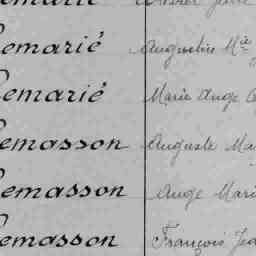 Lemarié Augustin Mie
Lemarié Marie Ange
Lemasson Auguste Ma
Lemasson Ange Mari
Lemasson François Jea